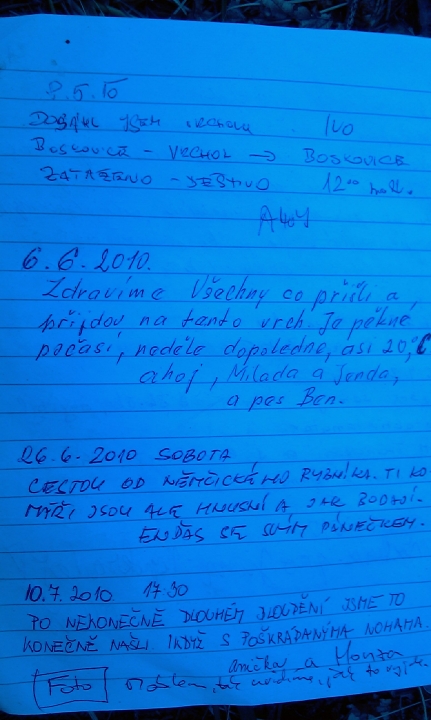 DOBYL JSEM VRCHOL IVO
BOSKOVICE - VRCHOL → BOSKOVICE
ZATAŽENO - DEŠTIVO 12°° hod.
AHOJ
6.6.2010.
Zdravíme Všechny co přišli a,
přijdou na tento vrch. Je pěkné
počasí, neděle dopoledne, asi 20°C
ahoj, Milada a Jenda,
a pes Ben.
26.6.2010 SOBOTA
CESTOU OD NĚMČICKÉHO RYBNÍKA. TI KO
MÁŘI JSOU ALE HNUSNÍ A, JAK BODAJÍ.
ENDAS SE SVÝM PSNEČKEM.
10.7.2010. 17.30
PO NEKONEČNĚ DLOUHÉM BLOUDĚNÍ JSME TO
KONEČNĚ NAŠLI. I KDYŽ S POŠKRÁBANÝMA NOHAMA.
Anička a Honza
Foto